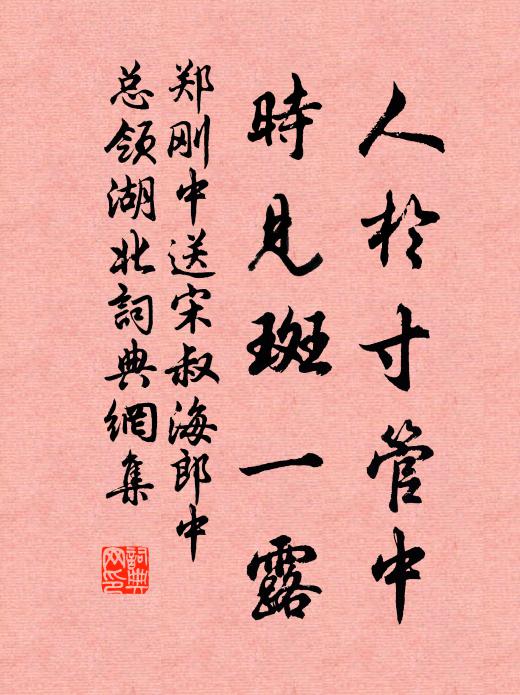 人於寸管中
時見斑一露
郑刚中送宋叔海郎中
总领湖北詞典網集
詞典网印